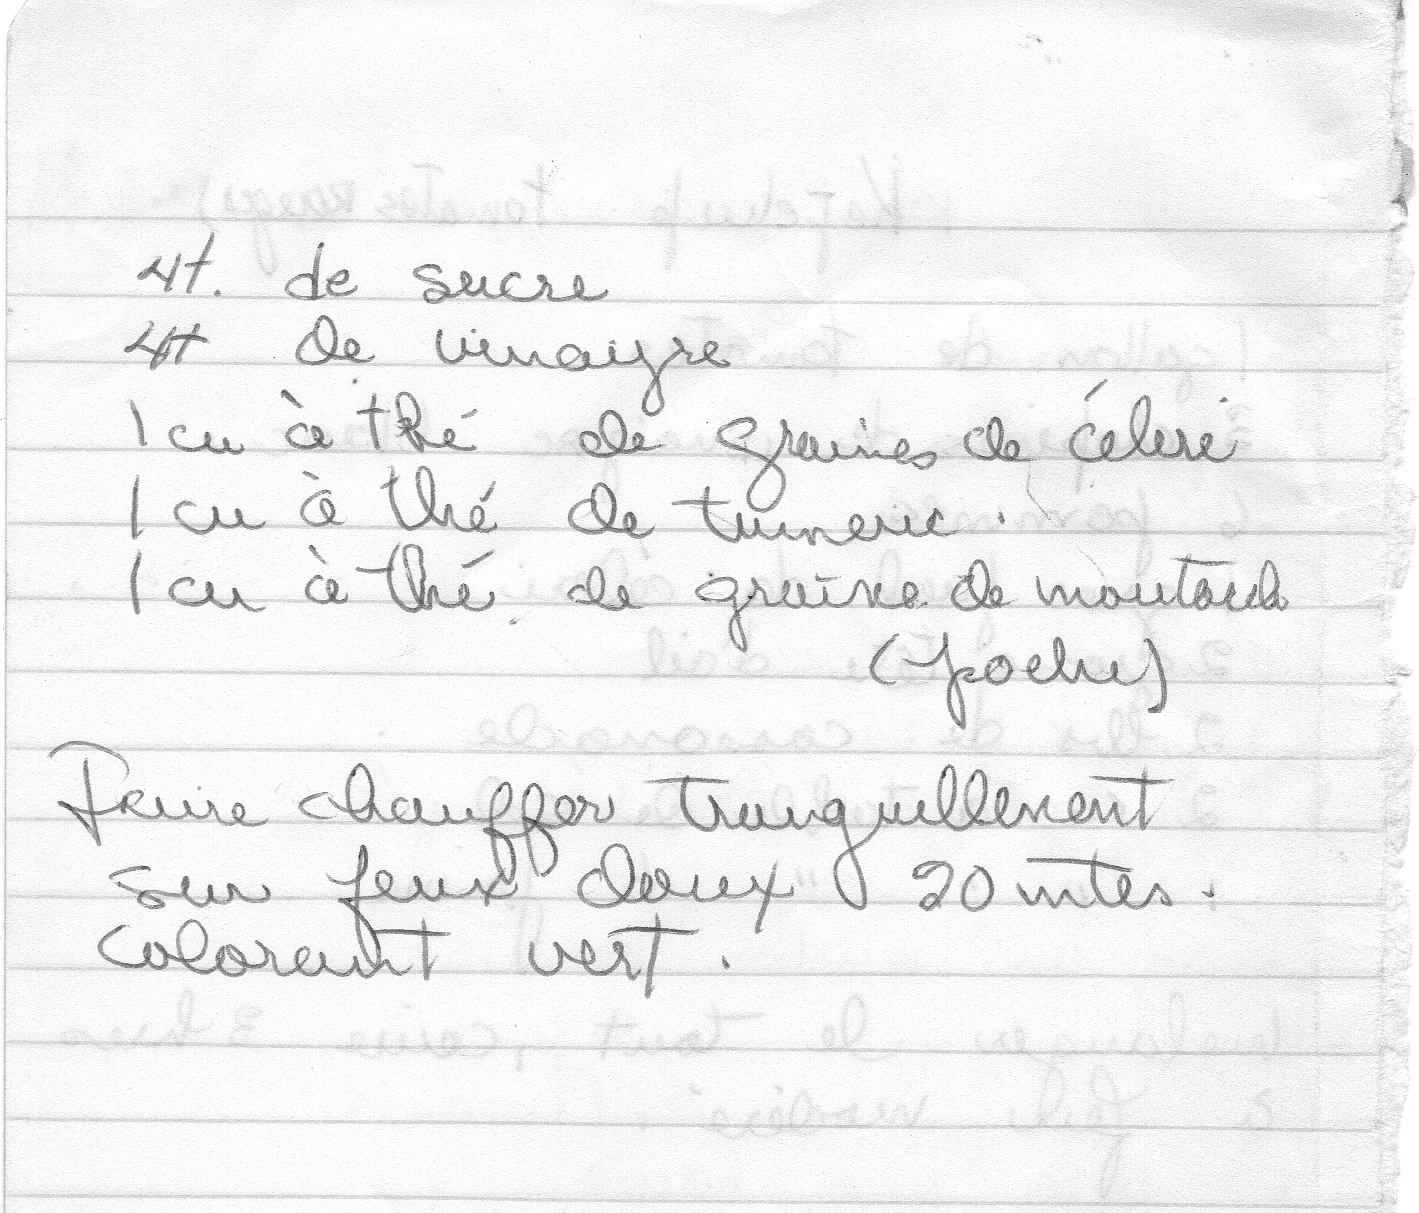 4t. de sucre
4t de vinaigre
1 cu à thé de graines de céleri
1 cu à thé de tumeric.
1 cu à thé de graine de moutarde
(poche)
Faire chauffer tranquillement
sur feux doux 20 mtes.
colorant vert.